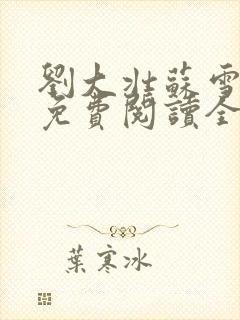 劉大壯蘇雪
免費閱讀全
葉寒冰